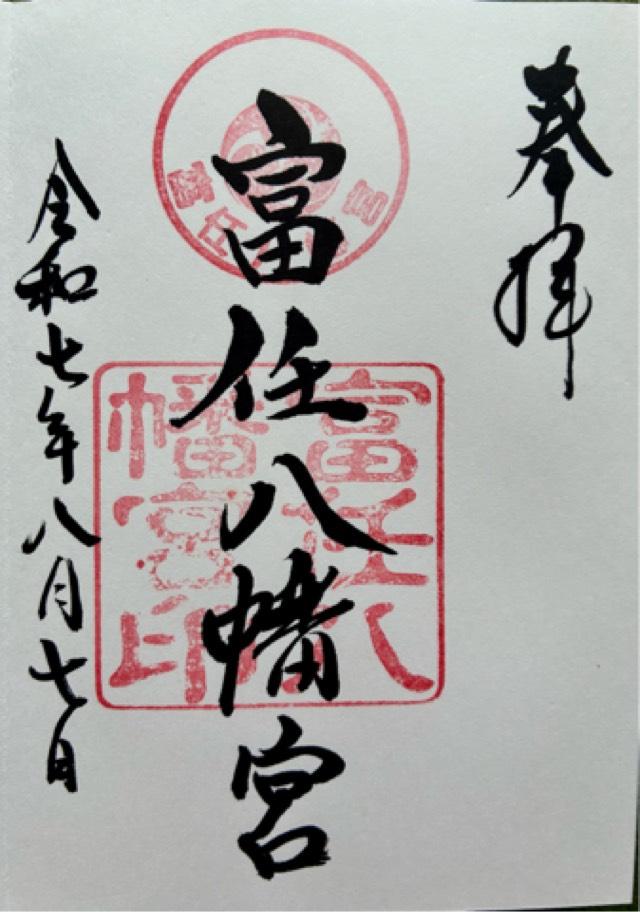 奉拝
富任八幡宮
令和七年八月七日
富任八幡宮
富任八
幡宮印